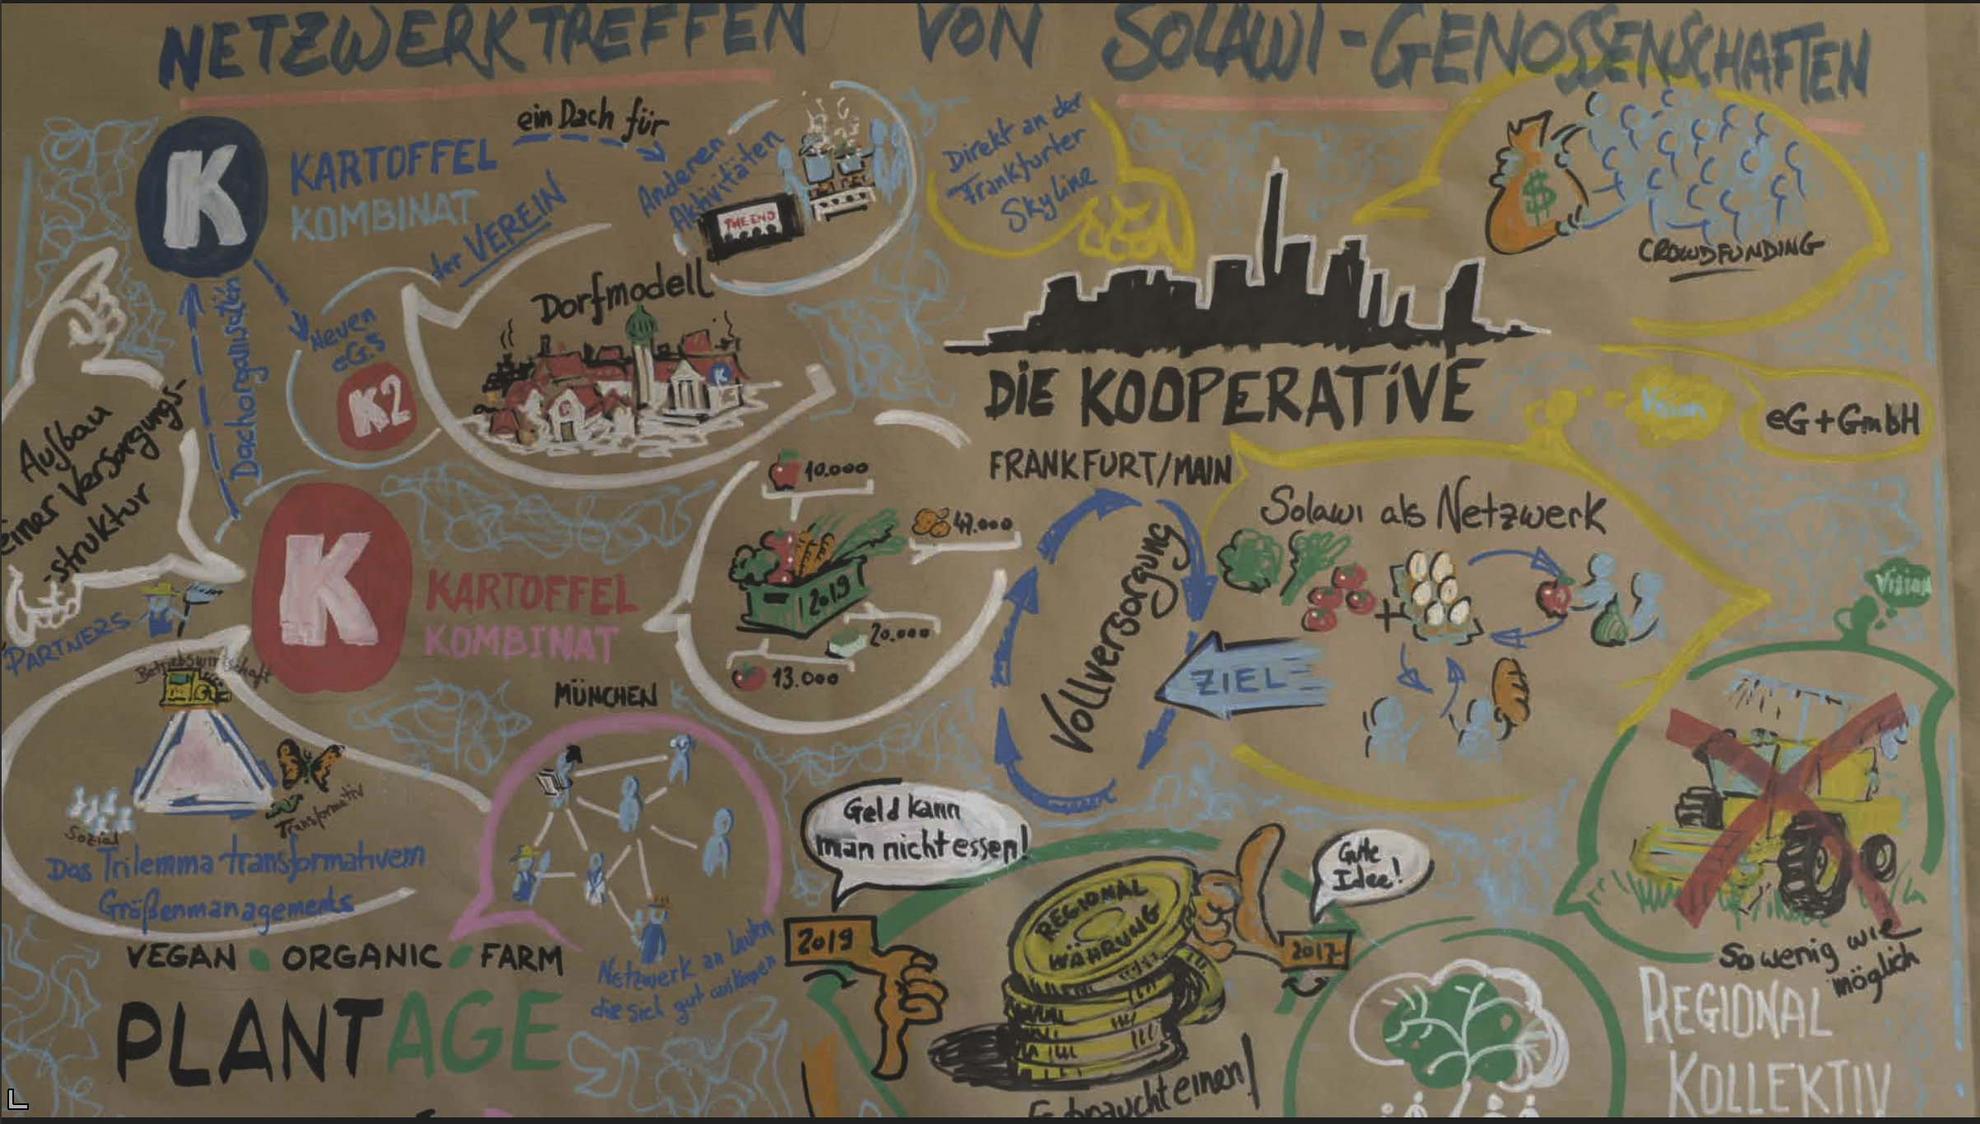 NETZWERKTREFFEN VON SOLAWI-GENOSSENSCHAFTEN
K
KARTOFFEL
KOMBINAT
ein Dach für
Anderen
Aktivitäten
THE END
der VEREIN
Neuen
eG.s
K2
Dorfmodell
K
Dachorganisation
Aufbau
einer Versorgungs-
struktur
PARTNERS
K
KARTOFFEL
KOMBINAT
MÜNCHEN
10.000
47.000
2019
20.000
13.000
Betriebswirtschaft
Sozial
Transformativ
Das Trilemma transformativem
Größenmanagements
Netzwerk an Leuten
die sich gut
Direkt an der
Frankfurter
Skyline
$
CROWDFUNDING
DIE KOOPERATIVE
FRANKFURT/MAIN
Vision
eG+GmbH
Solawi als Netzwerk
Vollversorgung
ZIEL
Vision
So wenig wie
möglich
REGIONAL
KOLLEKTIV
Geld kann
man nicht essen!
Gute
Idee!
2019
2017
REGIONAL
WÄHRUNG
braucht einen!
VEGAN ORGANIC FARM
PLANTAGE